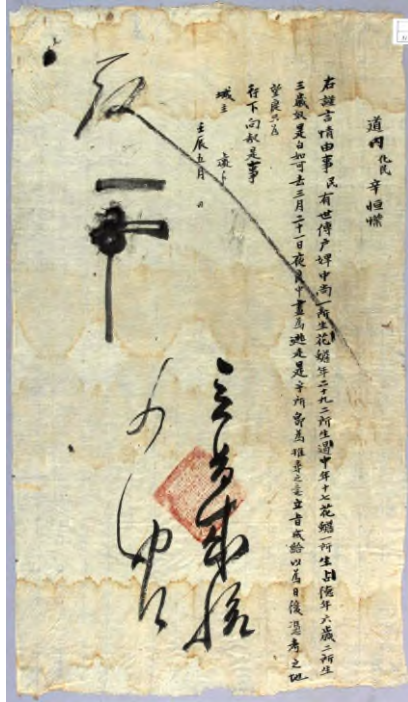 道內 化民 辛恒
右謹言情由事民有世傳戶婢中尙一所生花蟾年二十九二所生遇中年十七花蟾一所生占德年六歲二所生
三歲奴是白如可去三月二十一日夜良中盡爲逃走是乎所爲推尋之意立旨成給以爲日後憑考之地
望良只爲
行下向敎是事
城主 處分
壬辰五月 日
立旨成給